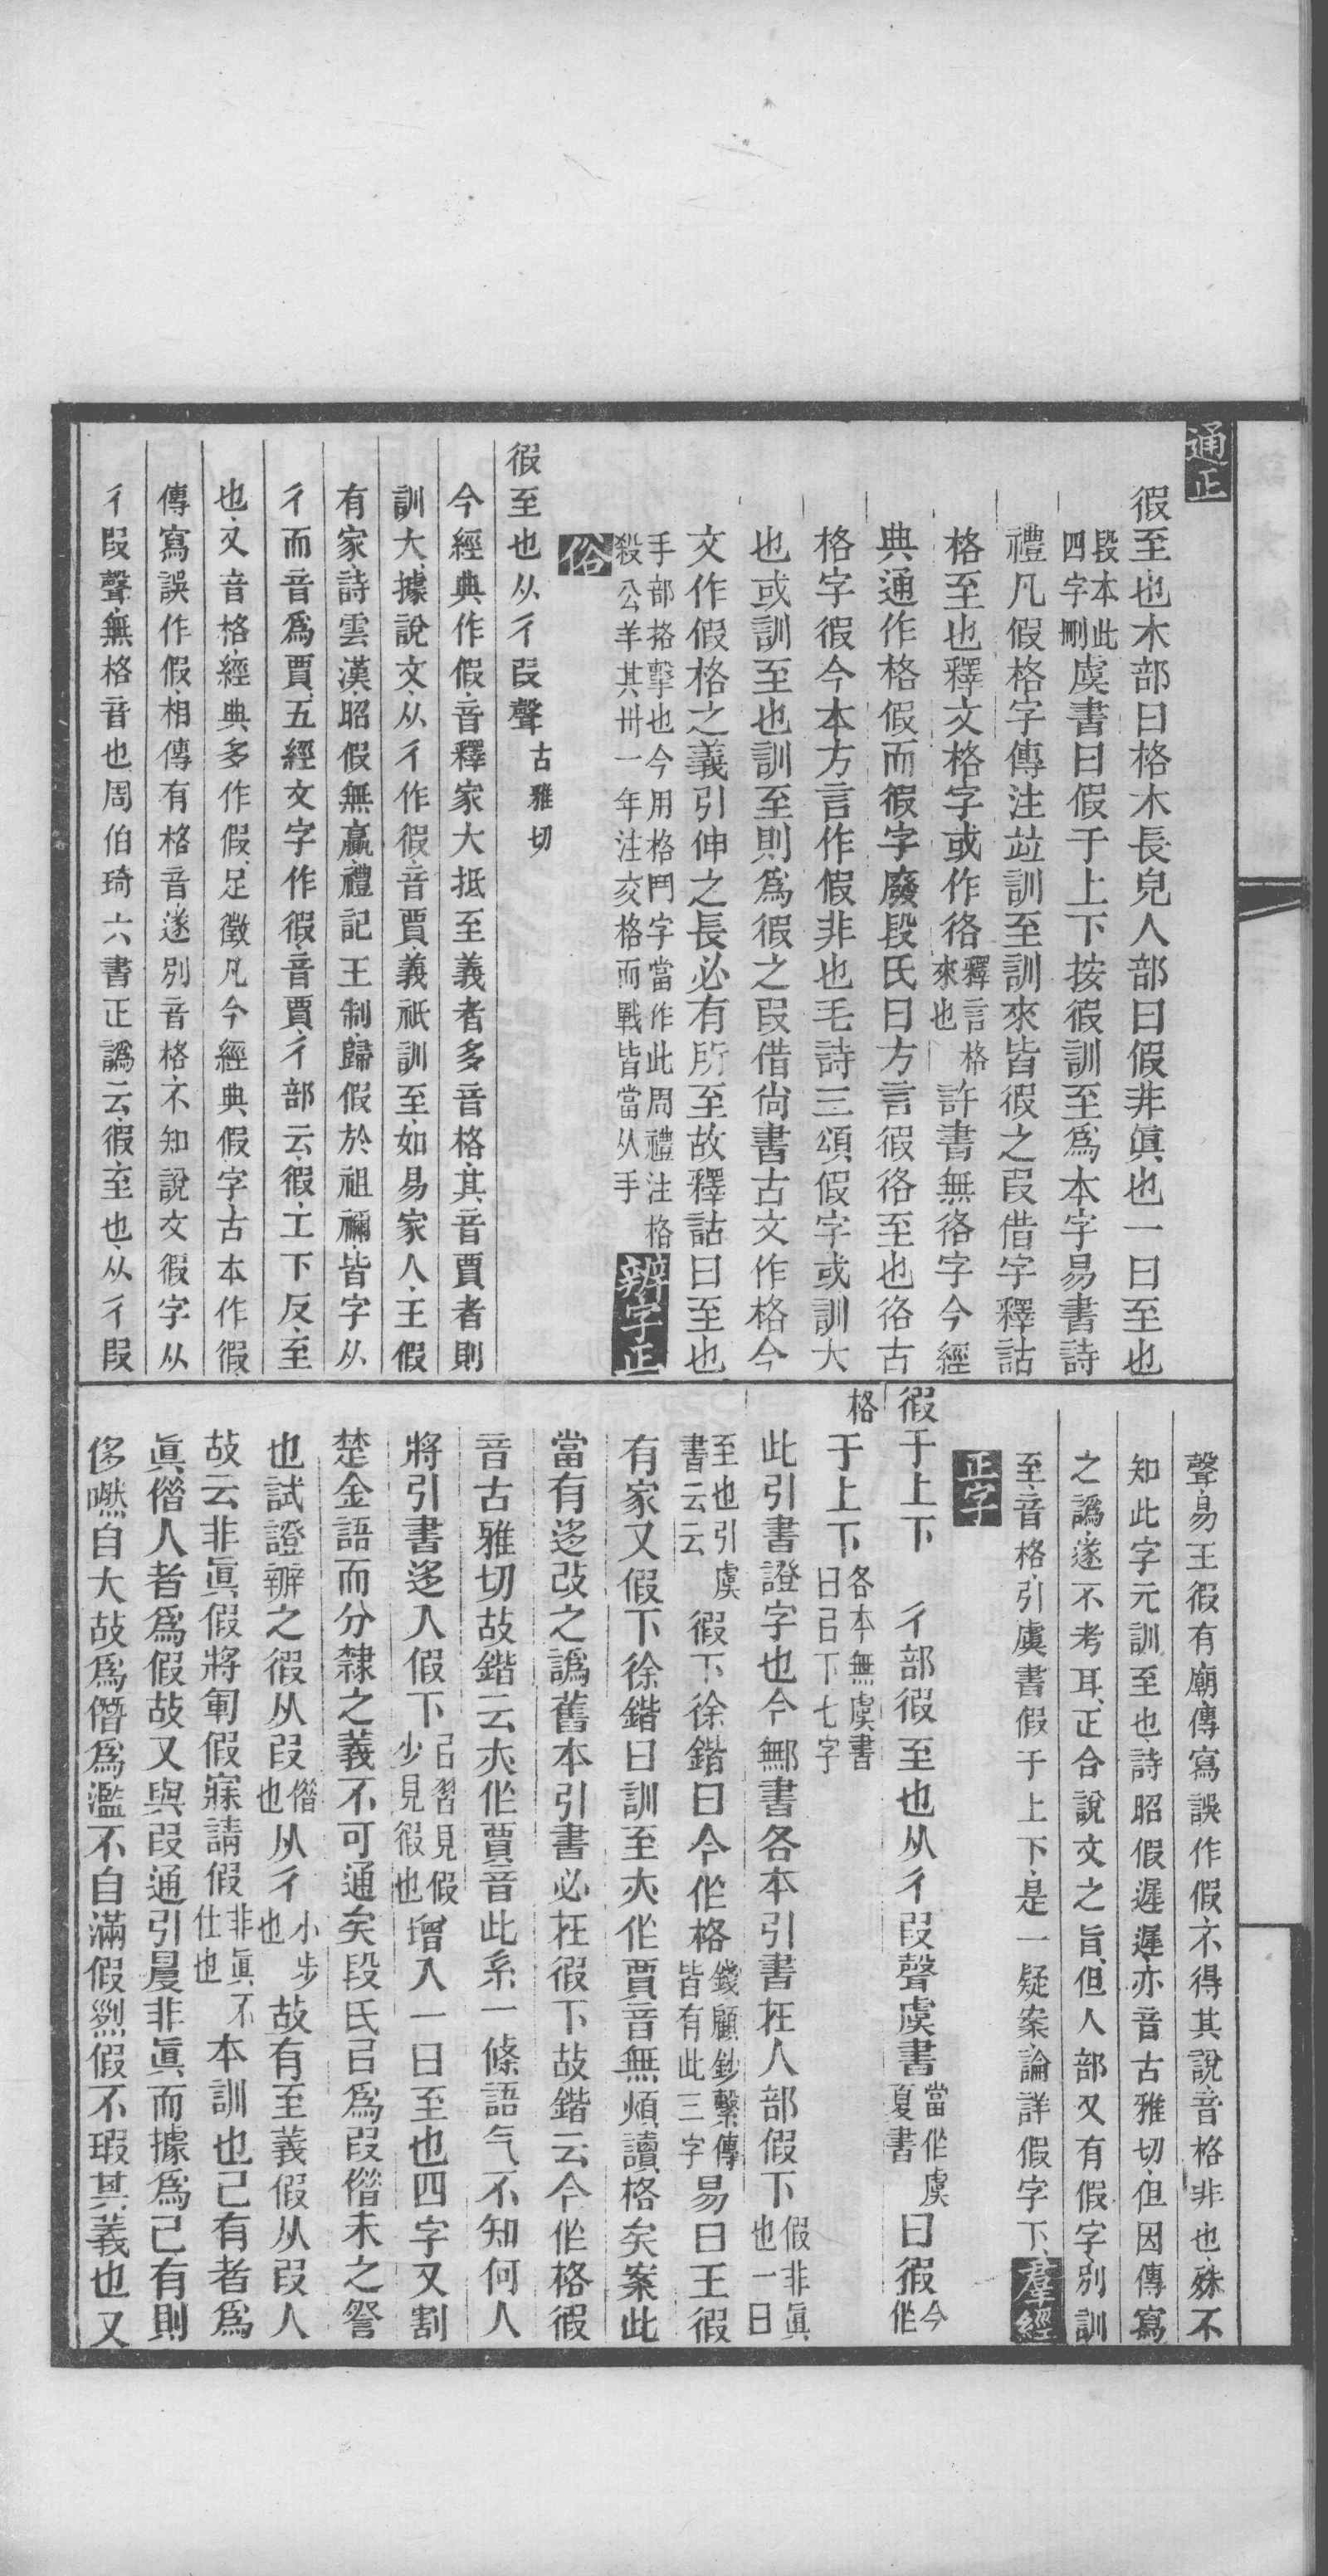 通正
徦至也木部曰格木長皃人部曰假非眞也一曰至也
段本此四字刪虞書曰假于上下按徦訓至爲本字易書詩
禮凡假格字傳注竝訓至訓來皆徦之叚借字釋詁
格至也釋文格字或作㣟釋言格來也許書無㣟字今經
典通作格假而徦字廢段氏曰方言徦㣟至也㣟古
格字徦今本方言作假非也毛詩三頌假字或訓大
也或訓至也訓至則爲徦之叚借尚書古文作格今
文作假格之義引伸之長必有所至故釋詁曰至也
手部挌擊也今用格鬥字當作此周禮注格
殺公羊其卅一年注交格而戰皆當从手
辨字正
俗
徦至也从彳叚聲古雅切
今經典作假音釋家大抵至義者多音格其音賈者則
訓大據說文从彳作徦音賈義祇訓至如易家人王假
有家詩雲漢昭假無贏禮記王制歸假於祖禰皆字从
彳而音爲賈五經文字作徦音賈彳部云徦工下反至
也又音格經典多作假足徵凡今經典假字古本作徦
傳寫誤作假相傳有格音遂別音格不知說文徦字从
彳叚聲無格音也周伯琦六書正譌云徦至也从彳叚
聲易王徦有廟傳寫誤作假不得其說音格非也殊不
知此字元訓至也詩昭假遲遲亦音古雅切但因傳寫
之譌遂不考耳正合說文之旨但人部又有假字別訓
至音格引虞書假于上下是一疑案論詳假字下
羣經
正字
徦于上下　彳部徦至也从彳叚聲虞書當作虞夏書曰徦今作
格于上下各本無虞書曰㠯下七字
此引書證字也今鄦書各本引書在人部假下假非眞也一曰
至也引虞書云云徦下徐鍇曰今作格錢顧鈔繫傳皆有此三字易曰王徦
有家又假下徐鍇曰訓至亦作賈音無煩讀格矣案此
當有迻改之譌舊本引書必在徦下故鍇云今作格徦
音古雅切故鍇云亦作賈音此系一條語气不知何人
將引書迻入假下㠯習見假少見徦也增入一曰至也四字又割
楚金語而分隸之義不可通矣段氏㠯爲叚借未之詧
也試證辨之徦从叚借也从彳小步也故有至義假从叚人
故云非眞假將軍假寐請假非眞不仕也本訓也己有者爲
眞借人者爲假故又與叚通引㬅非眞而據爲己有則
侈然自大故爲僭爲濫不自滿假烈假不瑕其義也又